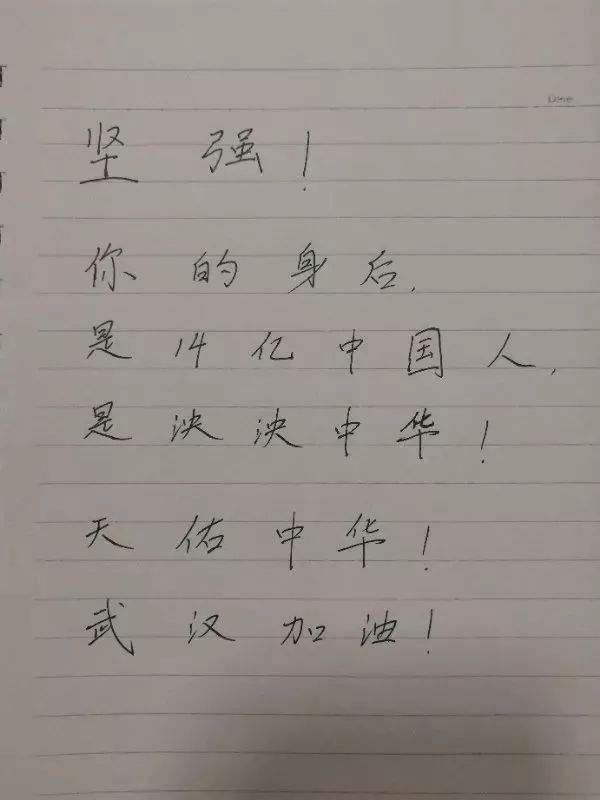 坚强！
你的身后，
是14亿中国人，
是泱泱中华！
天佑中华！
武汉加油！